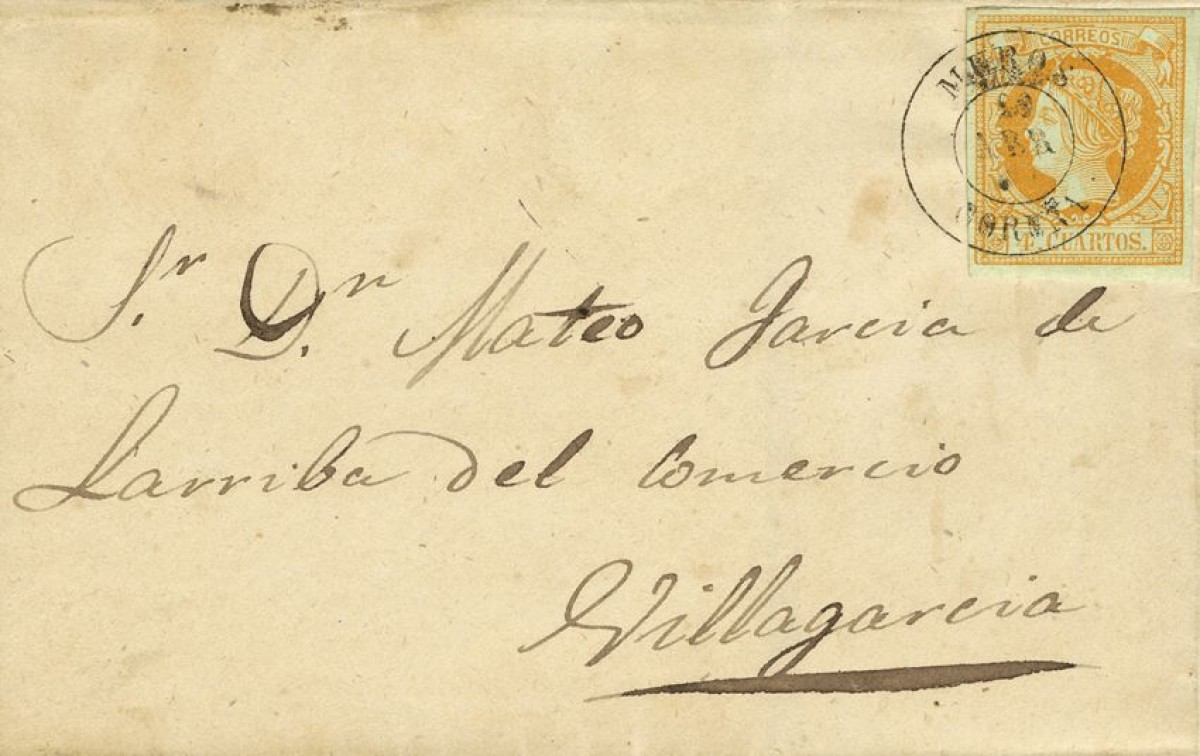 CORREOS
MUROS
ABR
CORUÑA
CUARTOS.
Sr. Dn. Mateo Garcia de
Larriba del Comercio
Villagarcia